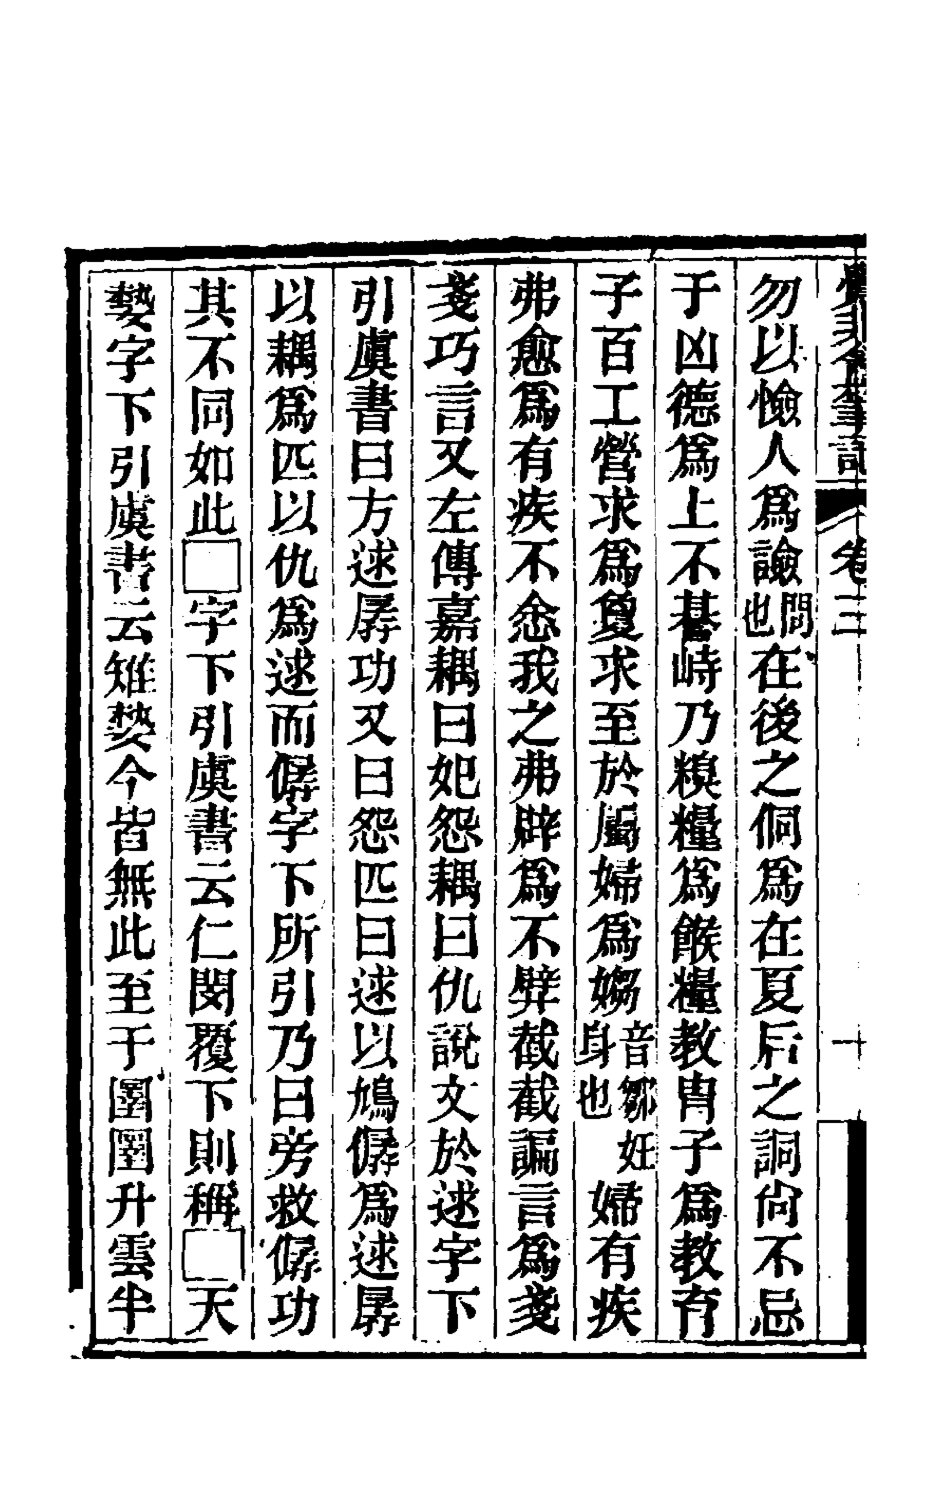 勿以憸人爲譣問也在後之侗爲在夏后之詷尙不忌
于凶德爲上不諅峙乃糗糧爲餱糧教胄子爲教育
子百工營求爲敻求至於屬婦爲媰音鄒妊身也婦有疾
弗愈爲有疾不悆我之弗辟爲不𨐨截截諞言爲戔
戔巧言又左傳嘉耦曰妃怨耦曰仇說文於逑字下
引虞書曰方逑孱功又曰怨匹曰逑以鳩僝爲逑孱
以耦爲匹以仇爲逑而僝字下所引乃曰旁救僝功
其不同如此□字下引虞書云仁閔覆下則稱□天
㜪字下引虞書云雉㜪今皆無此至于圛圛升雲半
卷三
十